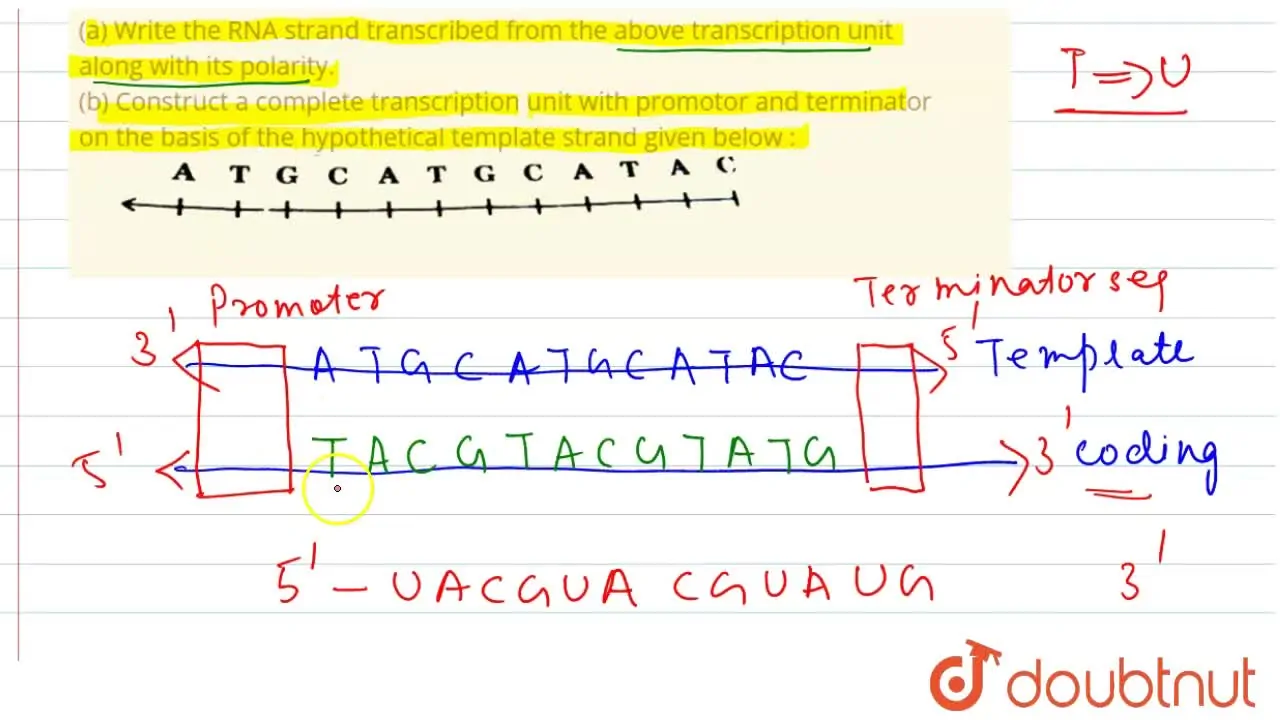 (a) Write the RNA strand transcribed from the above transcription unit
along with its polarity.
(b) Construct a complete transcription unit with promotor and terminator
on the basis of the hypothetical template strand given below :
T => U
A T G C A T G C A T A C
Promoter
Terminator seq
3' A T G C A T G C A T A C 5' Template
5' T A C G T A C G T A T G 3' coding
5' - U A C G U A C G U A U G 3'
doubtnut